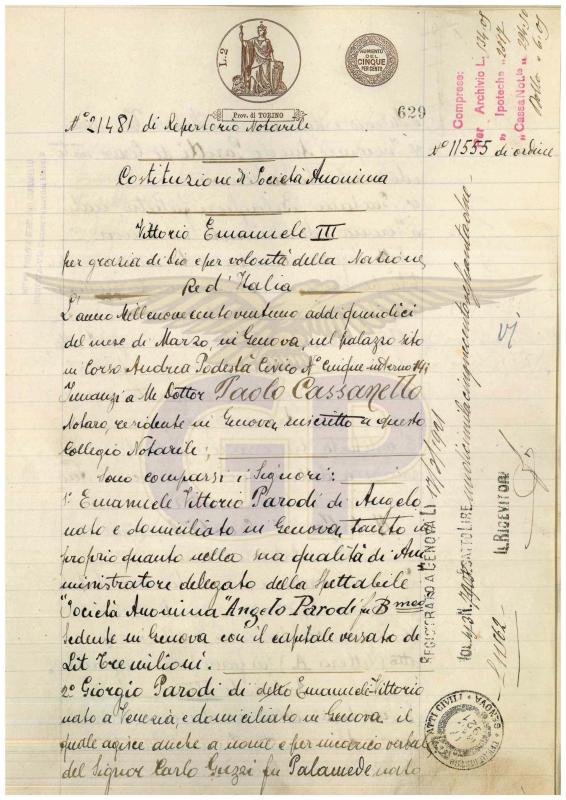 L. 2
AUMENTO
DEL
CINQUE
PER CENTO
Prov. di TORINO
629
Comprese:
Per Archivio L.
" Ipoteche "
"CassaNot.le "
N° 21481 di Repertorio Notarile
N° 11555 di ordine
Costituzione di Società Anonima
Vittorio Emanuele III
per grazia di Dio e per volontà della Nazione
Re d'Italia
L'anno Millenovecentoventuno addì quindici
del mese di Marzo, in Genova, nel palazzo sito
in Corso Andrea Podestà Civico N° Cinque interno 14;
Innanzi a Me Dottor Paolo Cassanello
Notaro, residente in Genova, inscritto a questo
Collegio Notarile;
Sono comparsi i Signori:
1° Emanuele Vittorio Parodi di Angelo
nato e domiciliato in Genova, tanto in
proprio quanto nella sua qualità di Am
ministratore delegato della Spettabile
"Società Anonima "Angelo Parodi fu Bmeo
Sedente in Genova con il capitale versato di
Lit Tre milioni.
2° Giorgio Parodi di detto Emanuele Vittorio
nato a Venezia, e domiciliato in Genova il
quale agisce anche a nome e per incarico verbale
del Signor Carlo Guzzi fu Palamede nato
REGISTRATO A GENOVA LI 17/3/1921
IL RICEVITORE
ATTI CIVILI
GENOVA
GP